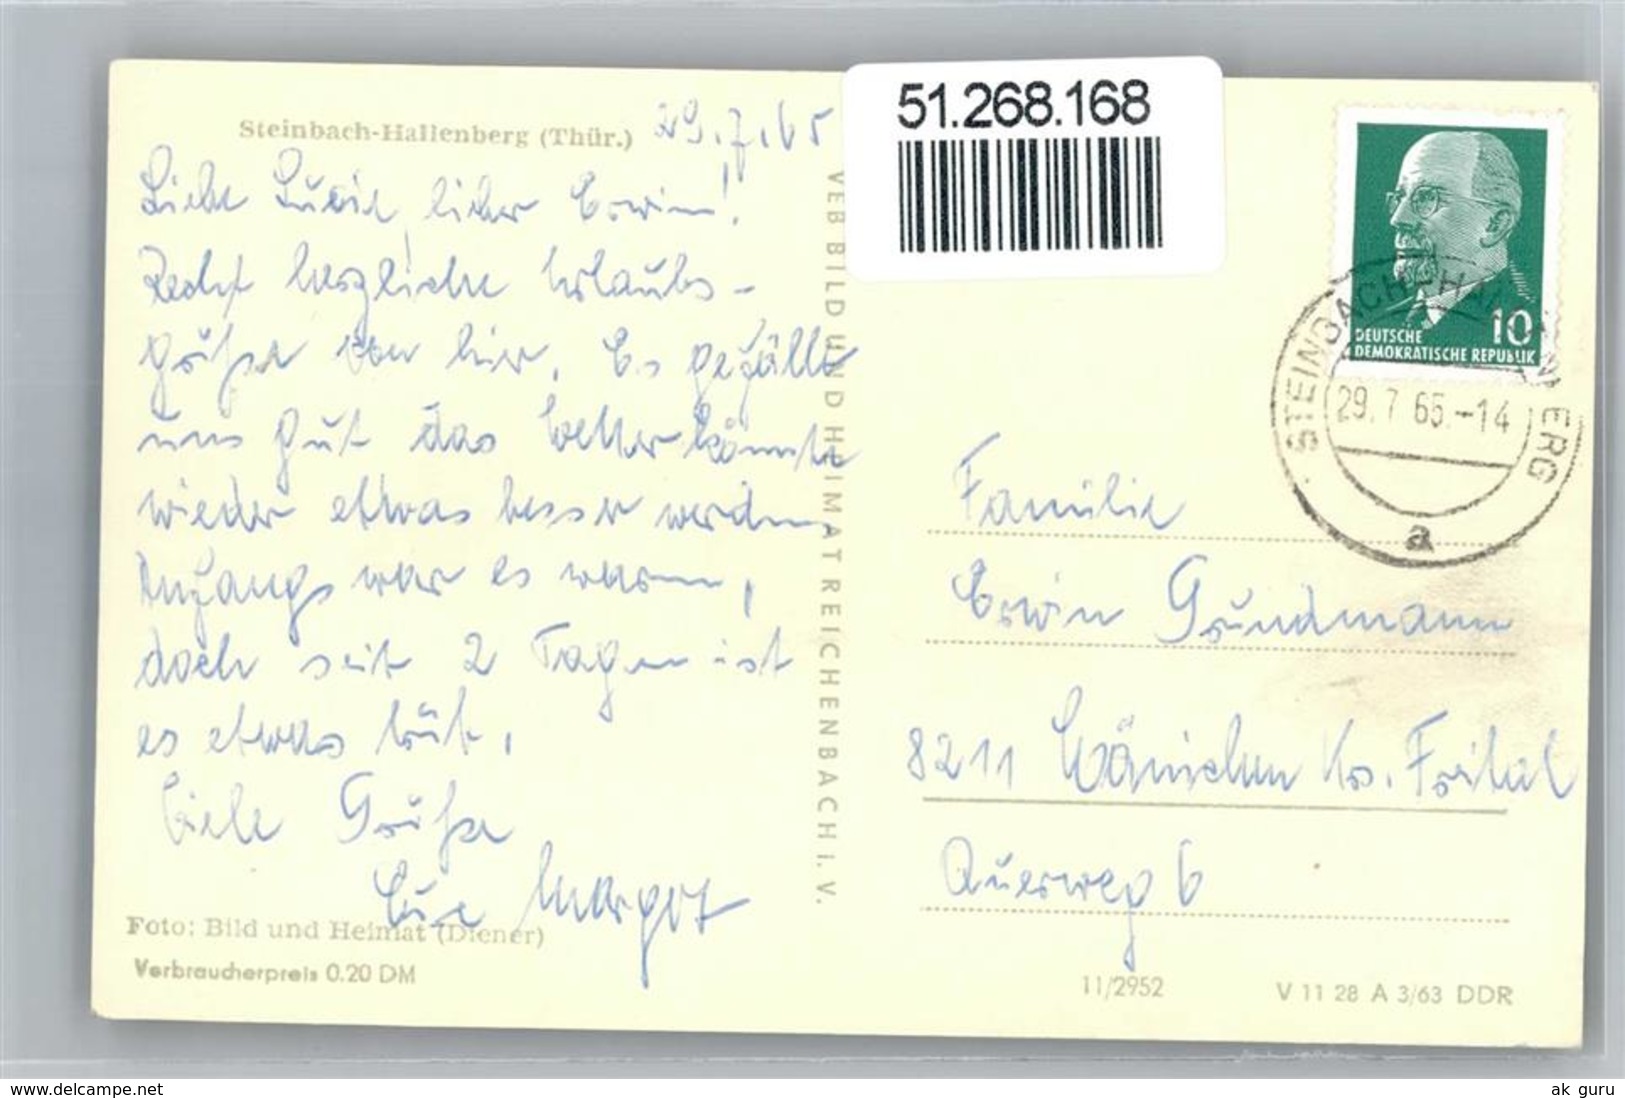 Steinbach-Hallenberg (Thür.)
29.7.65
Liebe Luzie lieber Erwin!
Recht herzliche Urlaubs-
grüße von hier. Es gefällt
uns gut das Wetter könnte
wieder etwas besser werden.
Anfangs war es warm,
doch seit 2 Tagen ist
es etwas trüb.
Viele Grüße
Eure Margot
Foto: Bild und Heimat (Diener)
Verbraucherpreis 0.20 DM
VEB BILD UND HEIMAT REICHENBACH I. V.
51.268.168
10
DEUTSCHE
DEMOKRATISCHE REPUBLIK
STEINBACH-HALLENBERG
29.7.65.-14
a
Familie
Erwin Grundmann
8211 Hänichen Krs. Freital
Querweg 6
11/2952
V 11 28 A 3/63 DDR
www.delcampe.net
ak guru